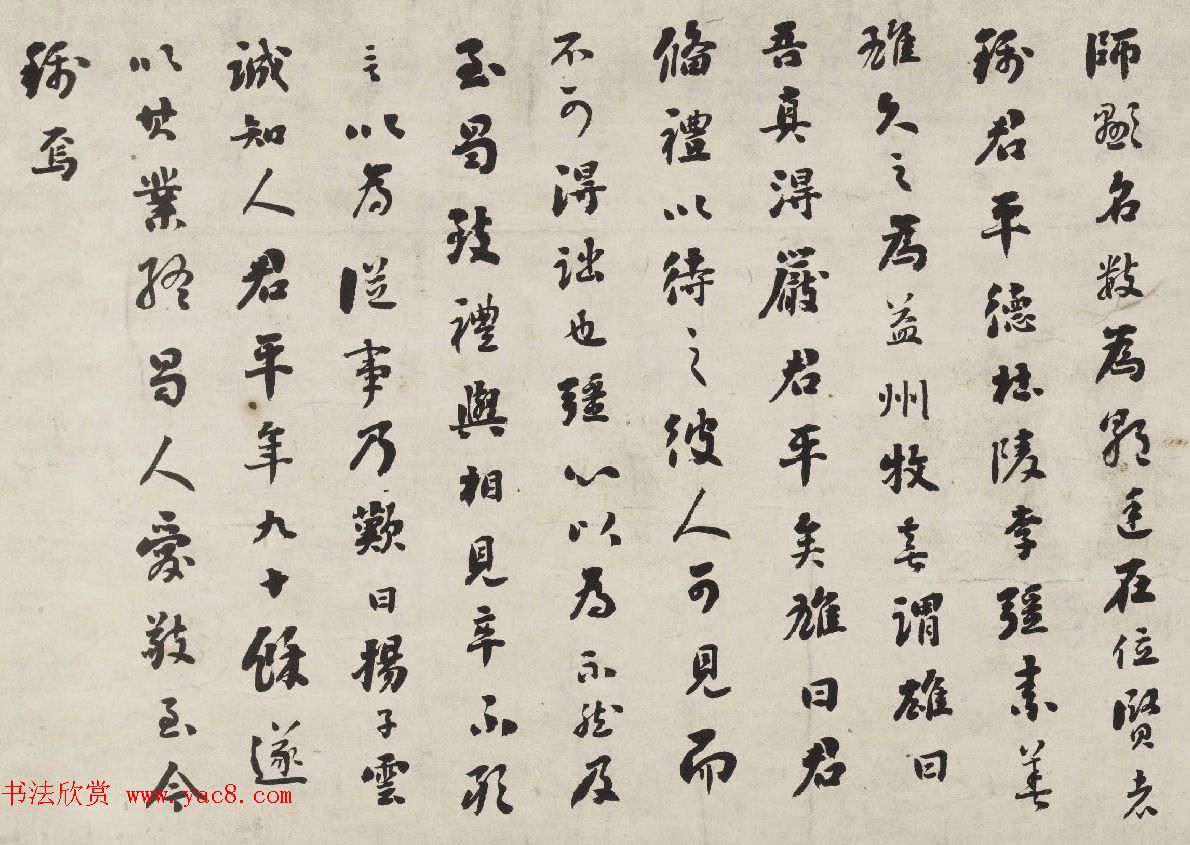 師顯名數為朝廷在位賢者
稱君平德杜陵李彊素善
雄久之為益州牧喜謂雄曰
吾真得嚴君平矣雄曰君
俻禮以待之彼人可見而
不可得詘也彊心以為不然及
至蜀致禮與相見卒不敢
言以為從事乃歎曰揚子雲
誠知人君平年九十餘遂
以其業終蜀人愛敬至今
稱焉
书法欣赏 www.yac8.com